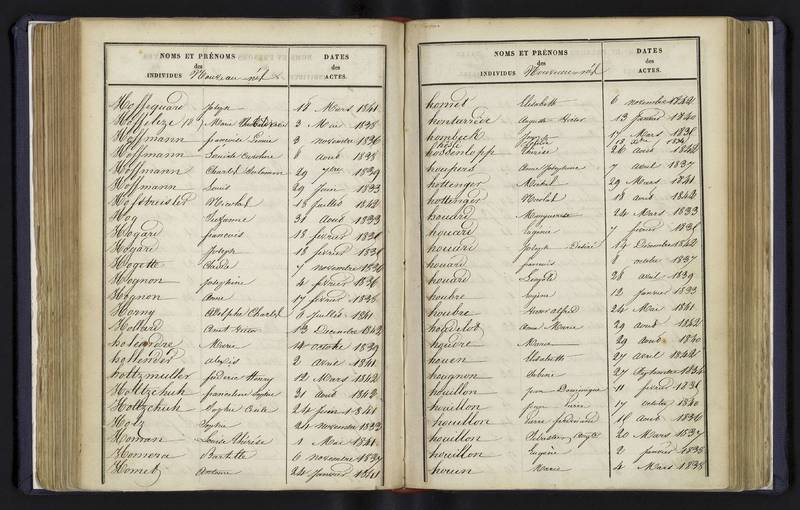 NOMS ET PRÉNOMS
des
INDIVIDUS Nouveau-nés
DATES
des
ACTES.
Hoffiquard Joseph 18 Mars 1841
Marie 3 Mai 1838
Hoffmann 3 novembre 1836
Hoffmann Caroline 8 Août 1838
Hoffmann Charles 29 7bre 1839
Hoffmann Louis 29 Juin 1833
Nicolas 18 Juillet 1842
Hog Suzanne 31 Août 1833
Hogard francois 18 février 1836
Hogard Joseph 18 février 1836
Hogette Claude 7 novembre 1836
Hognon Joséphine 4 février 1836
Hognon Anne 17 février 1838
Horny Adolphe Charles 9 Juillet 1841
Hollard 13 Décembre 1842
Marie 14 octobre 1839
hollender alexis 2 Avril 1841
holtzmuller Henry 12 Mars 1842
Holtzchuh 31 Août 1842
Holtzchuh Sophie 24 Juin 1841
Holz Sophie 24 novembre 1833
Homan Louise Thérèse 1 Mai 1841
Homera 6 novembre 1837
Homet Antoine 24 Janvier 1841
NOMS ET PRÉNOMS
des
INDIVIDUS Nouveau-nés
DATES
des
ACTES.
homet Elisabeth 6 novembre 1842
hontarrède Auguste 13 Janvier 1840
hombeck Joseph 17 Mars 1836
hossenlopp Thérèse 26 Août 1842
houpers Anne Joséphine 7 Avril 1837
hottenger Michel 29 Mars 1841
hottenger Nicolas 18 Août 1842
houard Marguerite 24 Mars 1833
houard Eugène 7 février 1836
houard Joseph Désiré 14 Décembre 1842
houard francois 8 octobre 1837
houard Léopold 28 avril 1839
houbre Eugène 12 Janvier 1833
houbre Alfred 24 Mai 1841
houdelot Anne Marie 29 Août 1842
houdre Marie 29 Août 1840
houen Elisabeth 27 Avril 1842
hougnon Sabine 27 Septembre 1834
houillon Jean Dominique 11 février 1836
houillon Jean Pierre 17 octobre 1840
houillon Pierre ferdinand 16 Août 1836
houillon Sébastien 20 Mars 1837
houillon Eugène 2 Janvier 1838
houin Marie 4 Mars 1838